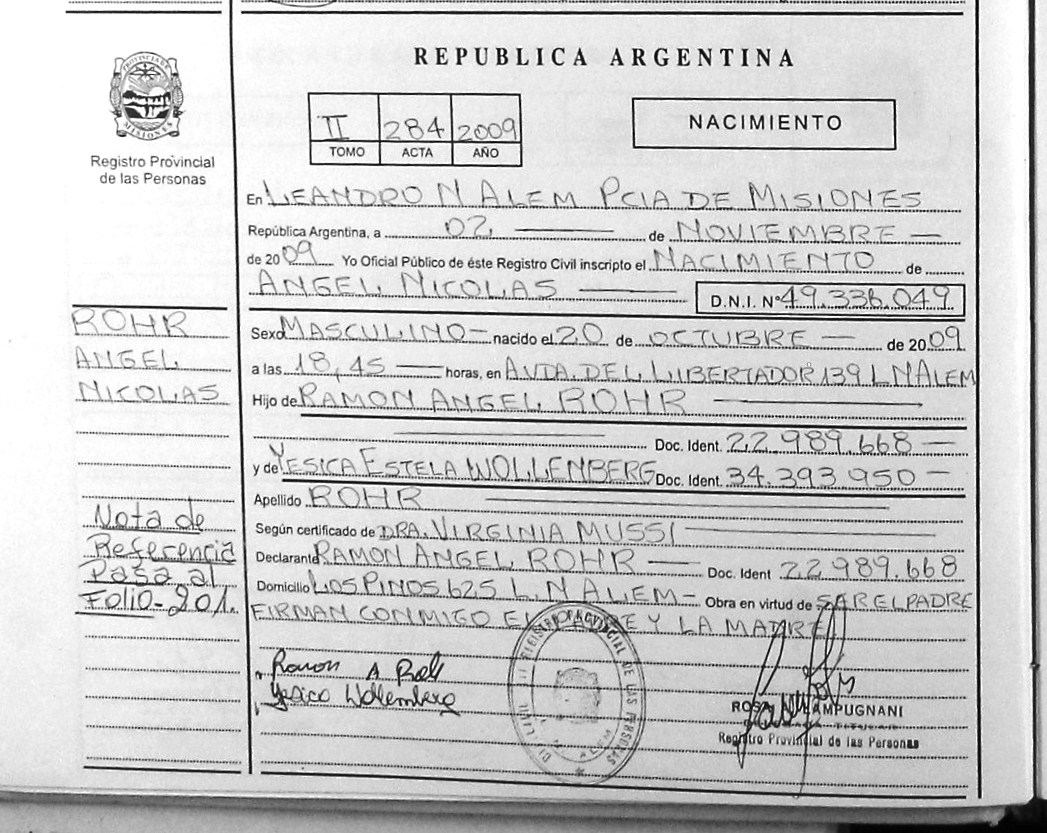 REPUBLICA ARGENTINA
PROVINCIA DE MISIONES
Registro Provincial
de las Personas
II 284 2009
TOMO ACTA AÑO
NACIMIENTO
En LEANDRO N ALEM PCIA DE MISIONES
República Argentina, a 02 de NOVIEMBRE
de 2009 Yo Oficial Público de éste Registro Civil inscripto el NACIMIENTO de
ANGEL NICOLAS D.N.I. Nº 49.336.049
ROHR
ANGEL
NICOLAS
Sexo MASCULINO nacido el 20 de OCTUBRE de 2009
a las 18,45 horas, en AVDA. DEL LIBERTADOR 139 L N ALEM
Hijo de RAMON ANGEL ROHR
Doc. Ident. 22.989.668
y de YESICA ESTELA WOLLENBERG Doc. Ident. 34.393.950
Apellido ROHR
Según certificado de DRA. VIRGINIA MUSSI
Declarante RAMON ANGEL ROHR Doc. Ident 22.989.668
Domicilio LOS PINOS 625 L. N ALEM Obra en virtud de SAR EL PADRE
FIRMAN CONMIGO EL PADRE Y LA MADRE
Nota de
Referencia
Pasa al
Folio-201.
Ramon A Rohr
Yesica Wollenberg
REGISTRO PROVINCIAL DE LAS PERSONAS
ROSA LAMPUGNANI
TITULAR
Registro Provincial de las Personas